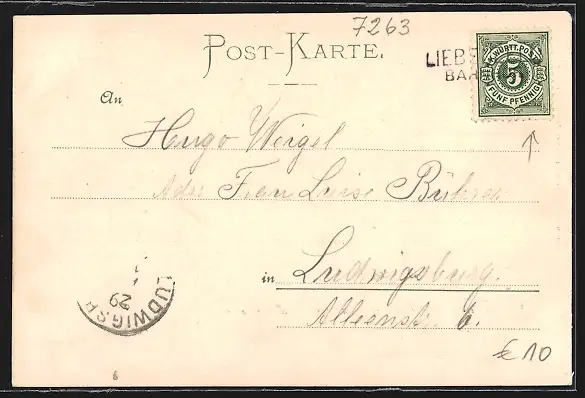 7263
POST-KARTE.
LIEBE
BAH
K. WÜRTT. POST
5
FÜNF PFENNIG
An
Hugo Weigel
Adr. Frau Luise Bührer
in Ludwigsburg.
Alleenstr. 6.
LUDWIGSB
29
€10